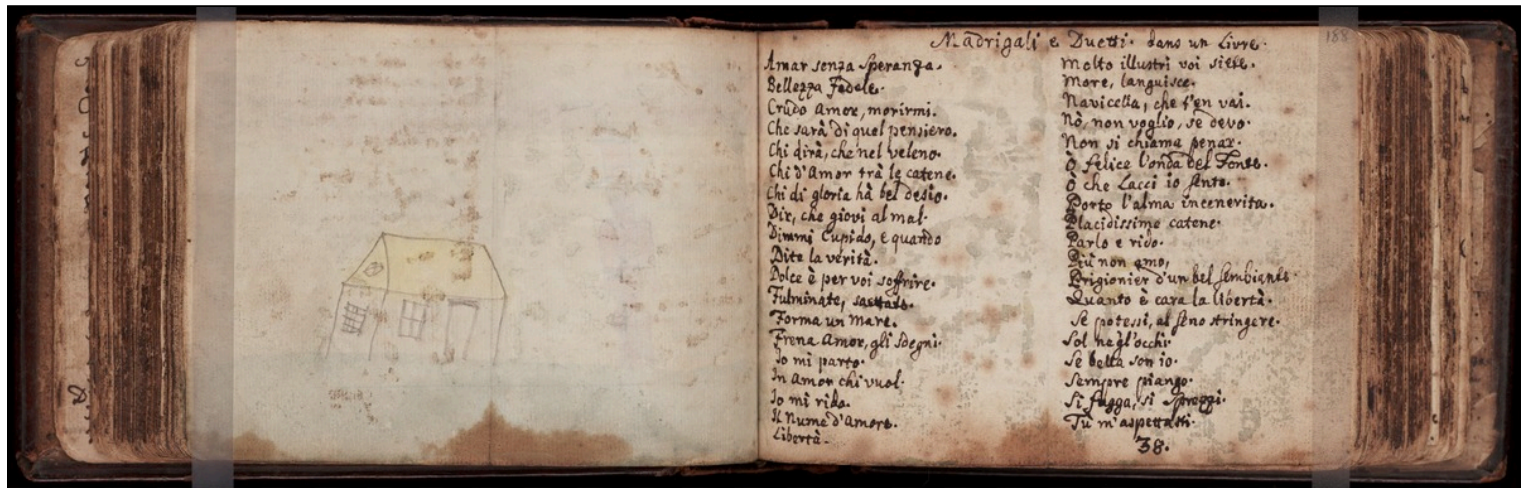 Madrigali e Duetti. dans un Livre.
188
Amar senza speranza.
Bellezza Fedele.
Crudo Amor, morirmi.
Che sarà di quel pensiero.
Chi dirà, che nel veleno.
Chi d'Amor trà le catene.
Chi di gloria hà bel desio.
Dir, che giovi al mal.
Dimmi Cupido, e quando
Dite la verità.
Dolce è per voi soffrire.
Fulminate, saettate.
Forma un Mare.
Frena Amor, gli sdegni.
Io mi parto.
In Amor chi vuol.
Io mi rido.
Il Nume d'Amore.
Libertà.
Molto illustri voi siete.
More, languisce.
Navicella, che s'en vai.
Nò, non voglio, se devo.
Non si chiama penar.
Ò felice l'onda del Fonte.
Ò che Lacci io sento.
Porto l'alma incenerita.
Placidissime catene.
Parlo e rido.
Più non amo,
Prigionier d'un bel sembiante.
Quanto è cara la libertà.
Se potessi, al seno stringere.
Sol negl'occhi.
Se bella son io.
Sempre piango.
Si fugga, si sprezzi.
Tù m'aspettasti.
38.